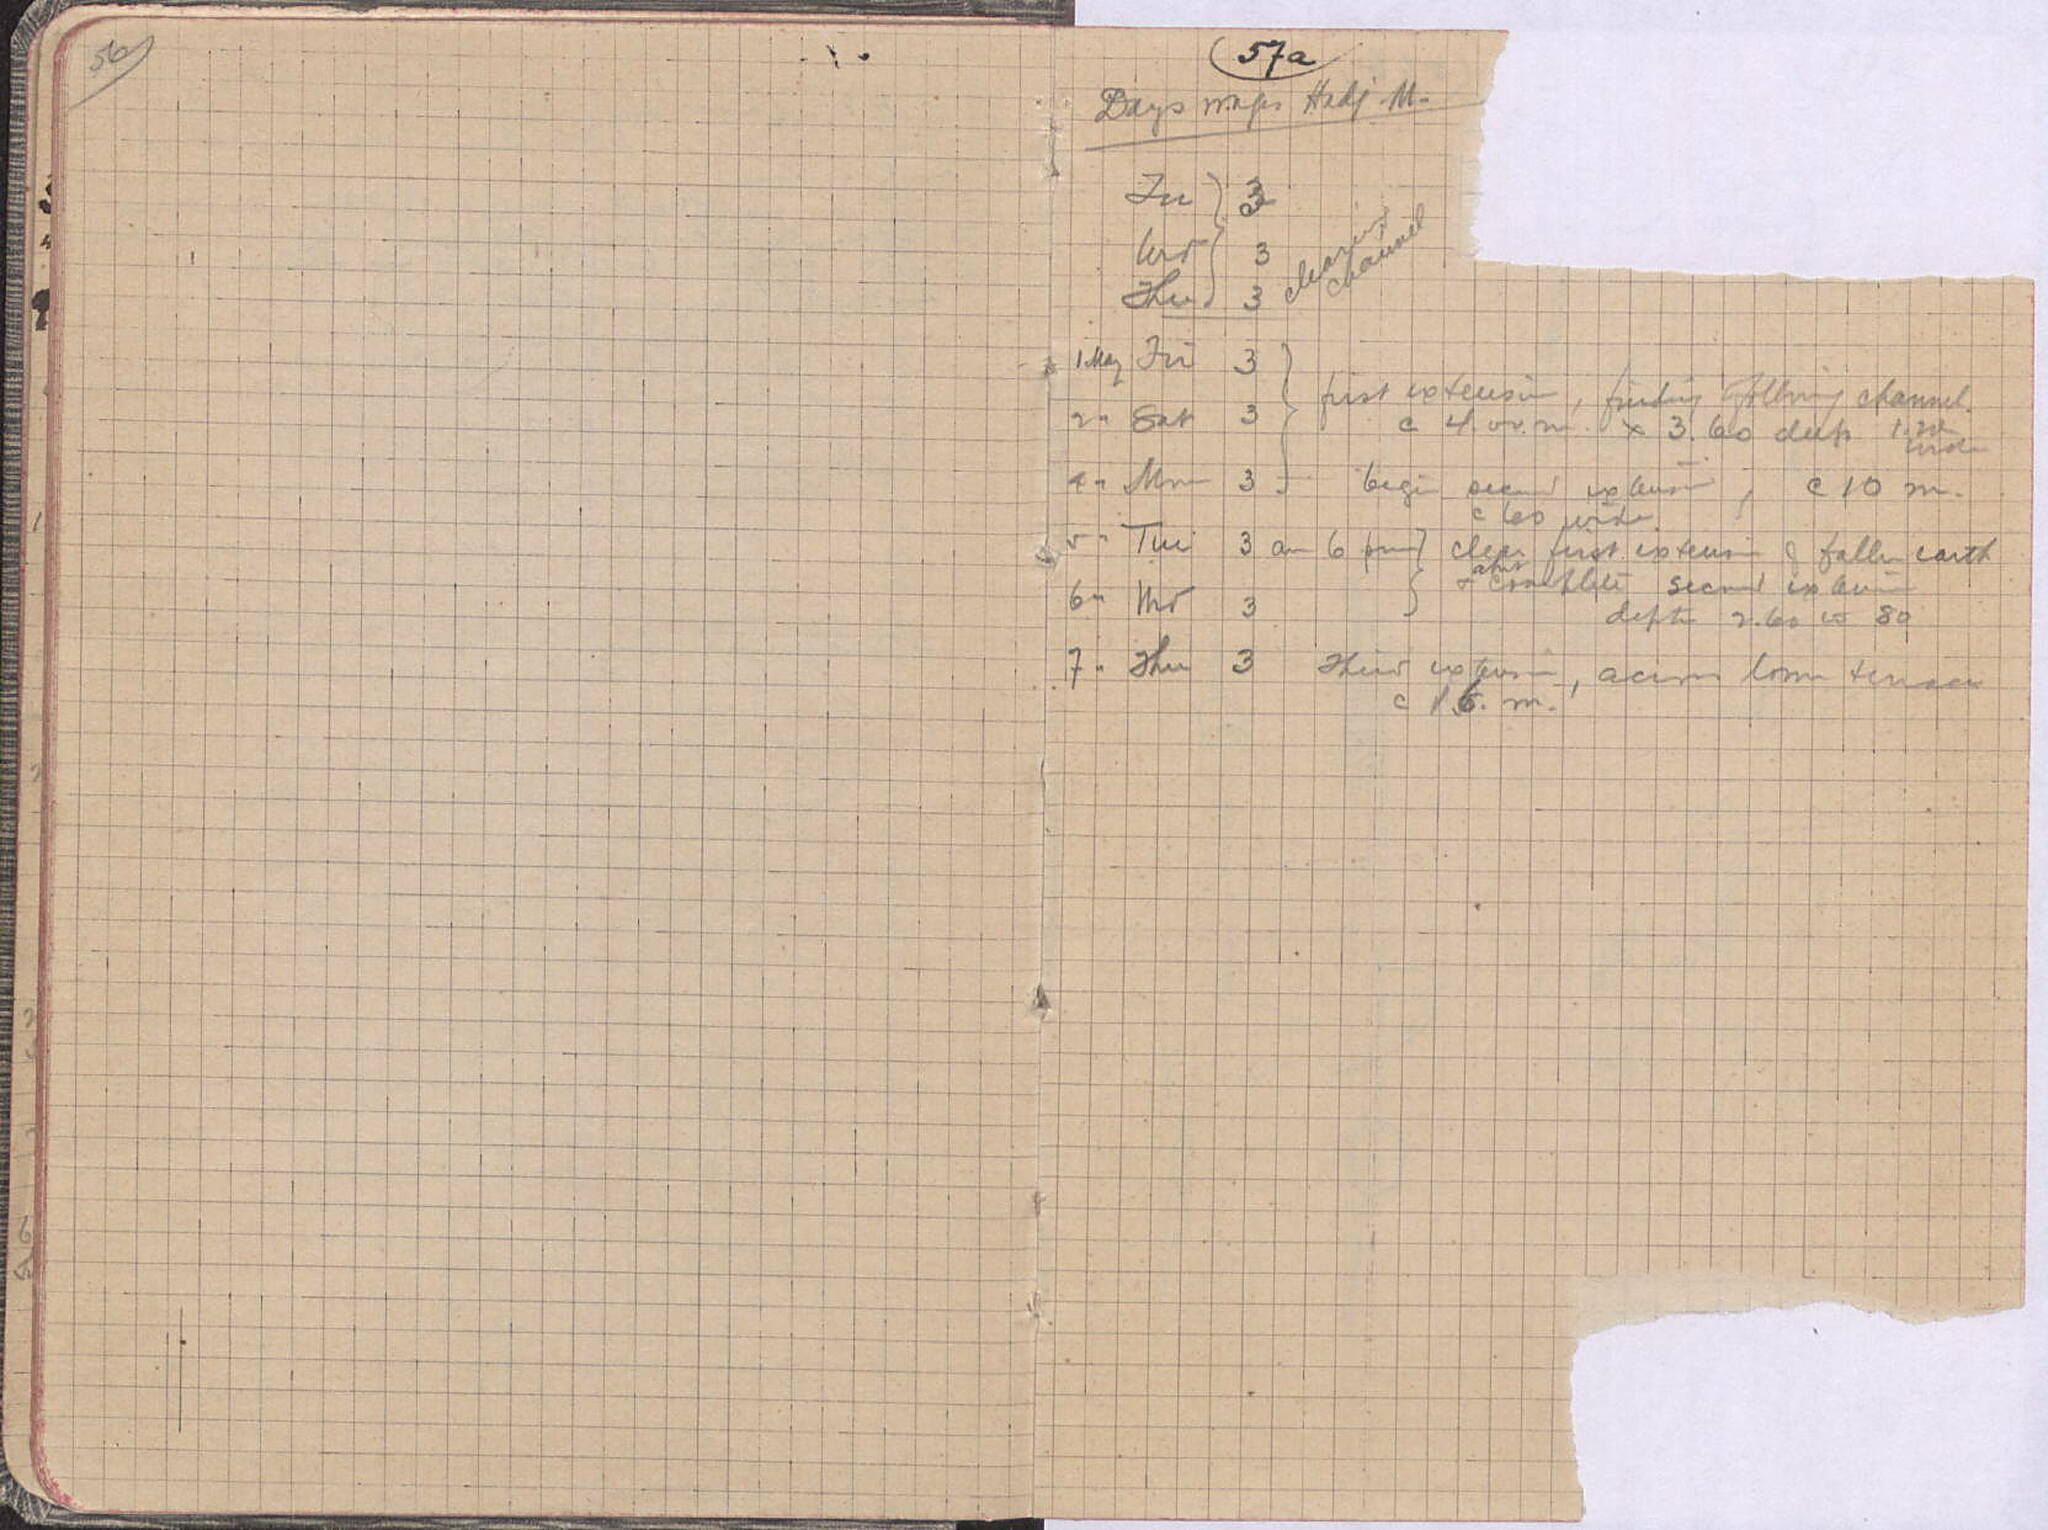 56
57a
Days wages Hadj M.
Tu } 3
Wed } 3 clearing
Thu } 3 channel
1 May Fri 3
first extension, finding & following channel.
2 " Sat 3 c 4.00 m. x 3.60 deep 1.20
wide
4 " Mon 3 begin second extension, c 10 m.
c 60 wide
5 " Tue 3 am 6 pm } clear first extension of fallen earth
+ complete second extension
6 " Wed 3
depth 2.60 to 80
7 " Thu 3 Third extension, across lower terrace
c 16. m.